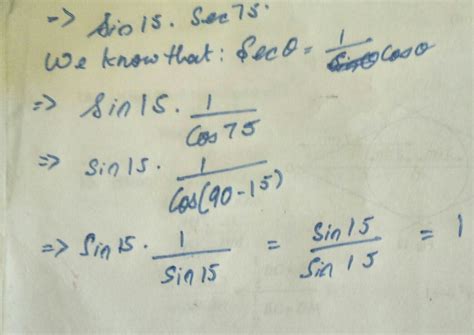 => Sin 15 . Sec 75.
We know that : Sec θ = 1/Cos θ
=> Sin 15 . 1/Cos 75
=> Sin 15 . 1/Cos(90-15)
=> Sin 15 . 1/Sin 15 = Sin 15/Sin 15 = 1